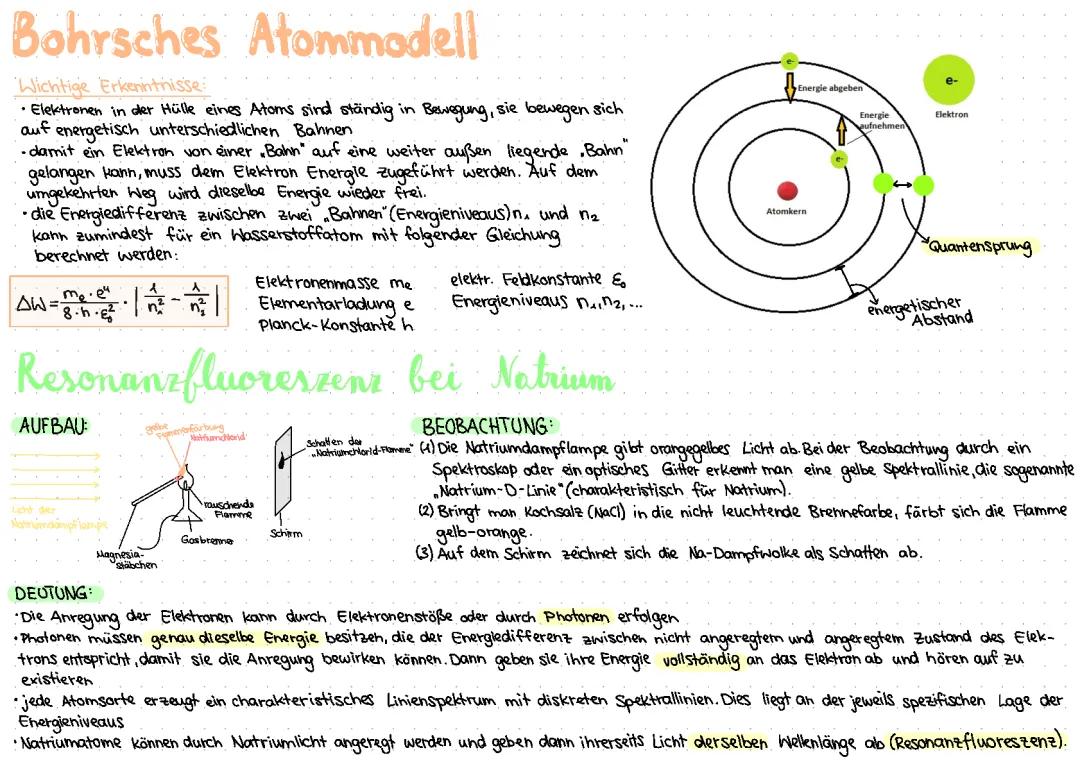 Bohrsches Atommodell
Wichtige Erkenntnisse:
• Elektronen in der Hülle eines Atoms sind ständig in Bewegung, sie bewegen sich
auf energetisch unterschiedlichen Bahnen
• damit ein Elektron von einer „Bahn" auf eine weiter außen liegende „Bahn"
gelangen kann, muss dem Elektron Energie zugeführt werden. Auf dem
umgekehrten Weg wird dieselbe Energie wieder frei.
• die Energiedifferenz zwischen zwei „Bahnen" (Energieniveaus) n₁ und n₂
kann zumindest für ein Wasserstoffatom mit folgender Gleichung
berechnet werden:
ΔW = mₑ · e⁴ / 8 · h · ε₀² · | 1/n₁² − 1/n₂² |
Elektronenmasse me
Elementarladung e
Planck-Konstante h
elektr. Feldkonstante ε₀
Energieniveaus n₁, n₂, ...
e-
Energie abgeben
Energie
aufnehmen
e-
Atomkern
e-
Elektron
Quantensprung
energetischer
Abstand
Resonanzfluoreszenz bei Natrium
AUFBAU:
gelbe
Flammenfärbung
Natriumchlorid
Licht der
Natriumdampflampe
Magnesia-
stäbchen
rauschende
Flamme
Gasbrenner
Schatten der
„Natriumchlorid-Flamme"
Schirm
BEOBACHTUNG:
(1) Die Natriumdampflampe gibt orangegelbes Licht ab. Bei der Beobachtung durch ein
Spektroskop oder ein optisches Gitter erkennt man eine gelbe Spektrallinie, die sogenannte
„Natrium-D-Linie" (charakteristisch für Natrium).
(2) Bringt man Kochsalz (NaCl) in die nicht leuchtende Brennefarbe, färbt sich die Flamme
gelb-orange.
(3) Auf dem Schirm zeichnet sich die Na-Dampfwolke als Schatten ab.
DEUTUNG:
• Die Anregung der Elektronen kann durch Elektronenstöße oder durch Photonen erfolgen
• Photonen müssen genau dieselbe Energie besitzen, die der Energiedifferenz zwischen nicht angeregtem und angeregtem Zustand des Elek-
trons entspricht, damit sie die Anregung bewirken können. Dann geben sie ihre Energie vollständig an das Elektron ab und hören auf zu
existieren
• jede Atomsorte erzeugt ein charakteristisches Linienspektrum mit diskreten Spektrallinien. Dies liegt an der jeweils spezifischen Lage der
Energieniveaus
• Natriumatome können durch Natriumlicht angeregt werden und geben dann ihrerseits Licht derselben Wellenlänge ab (Resonanzfluoreszenz).